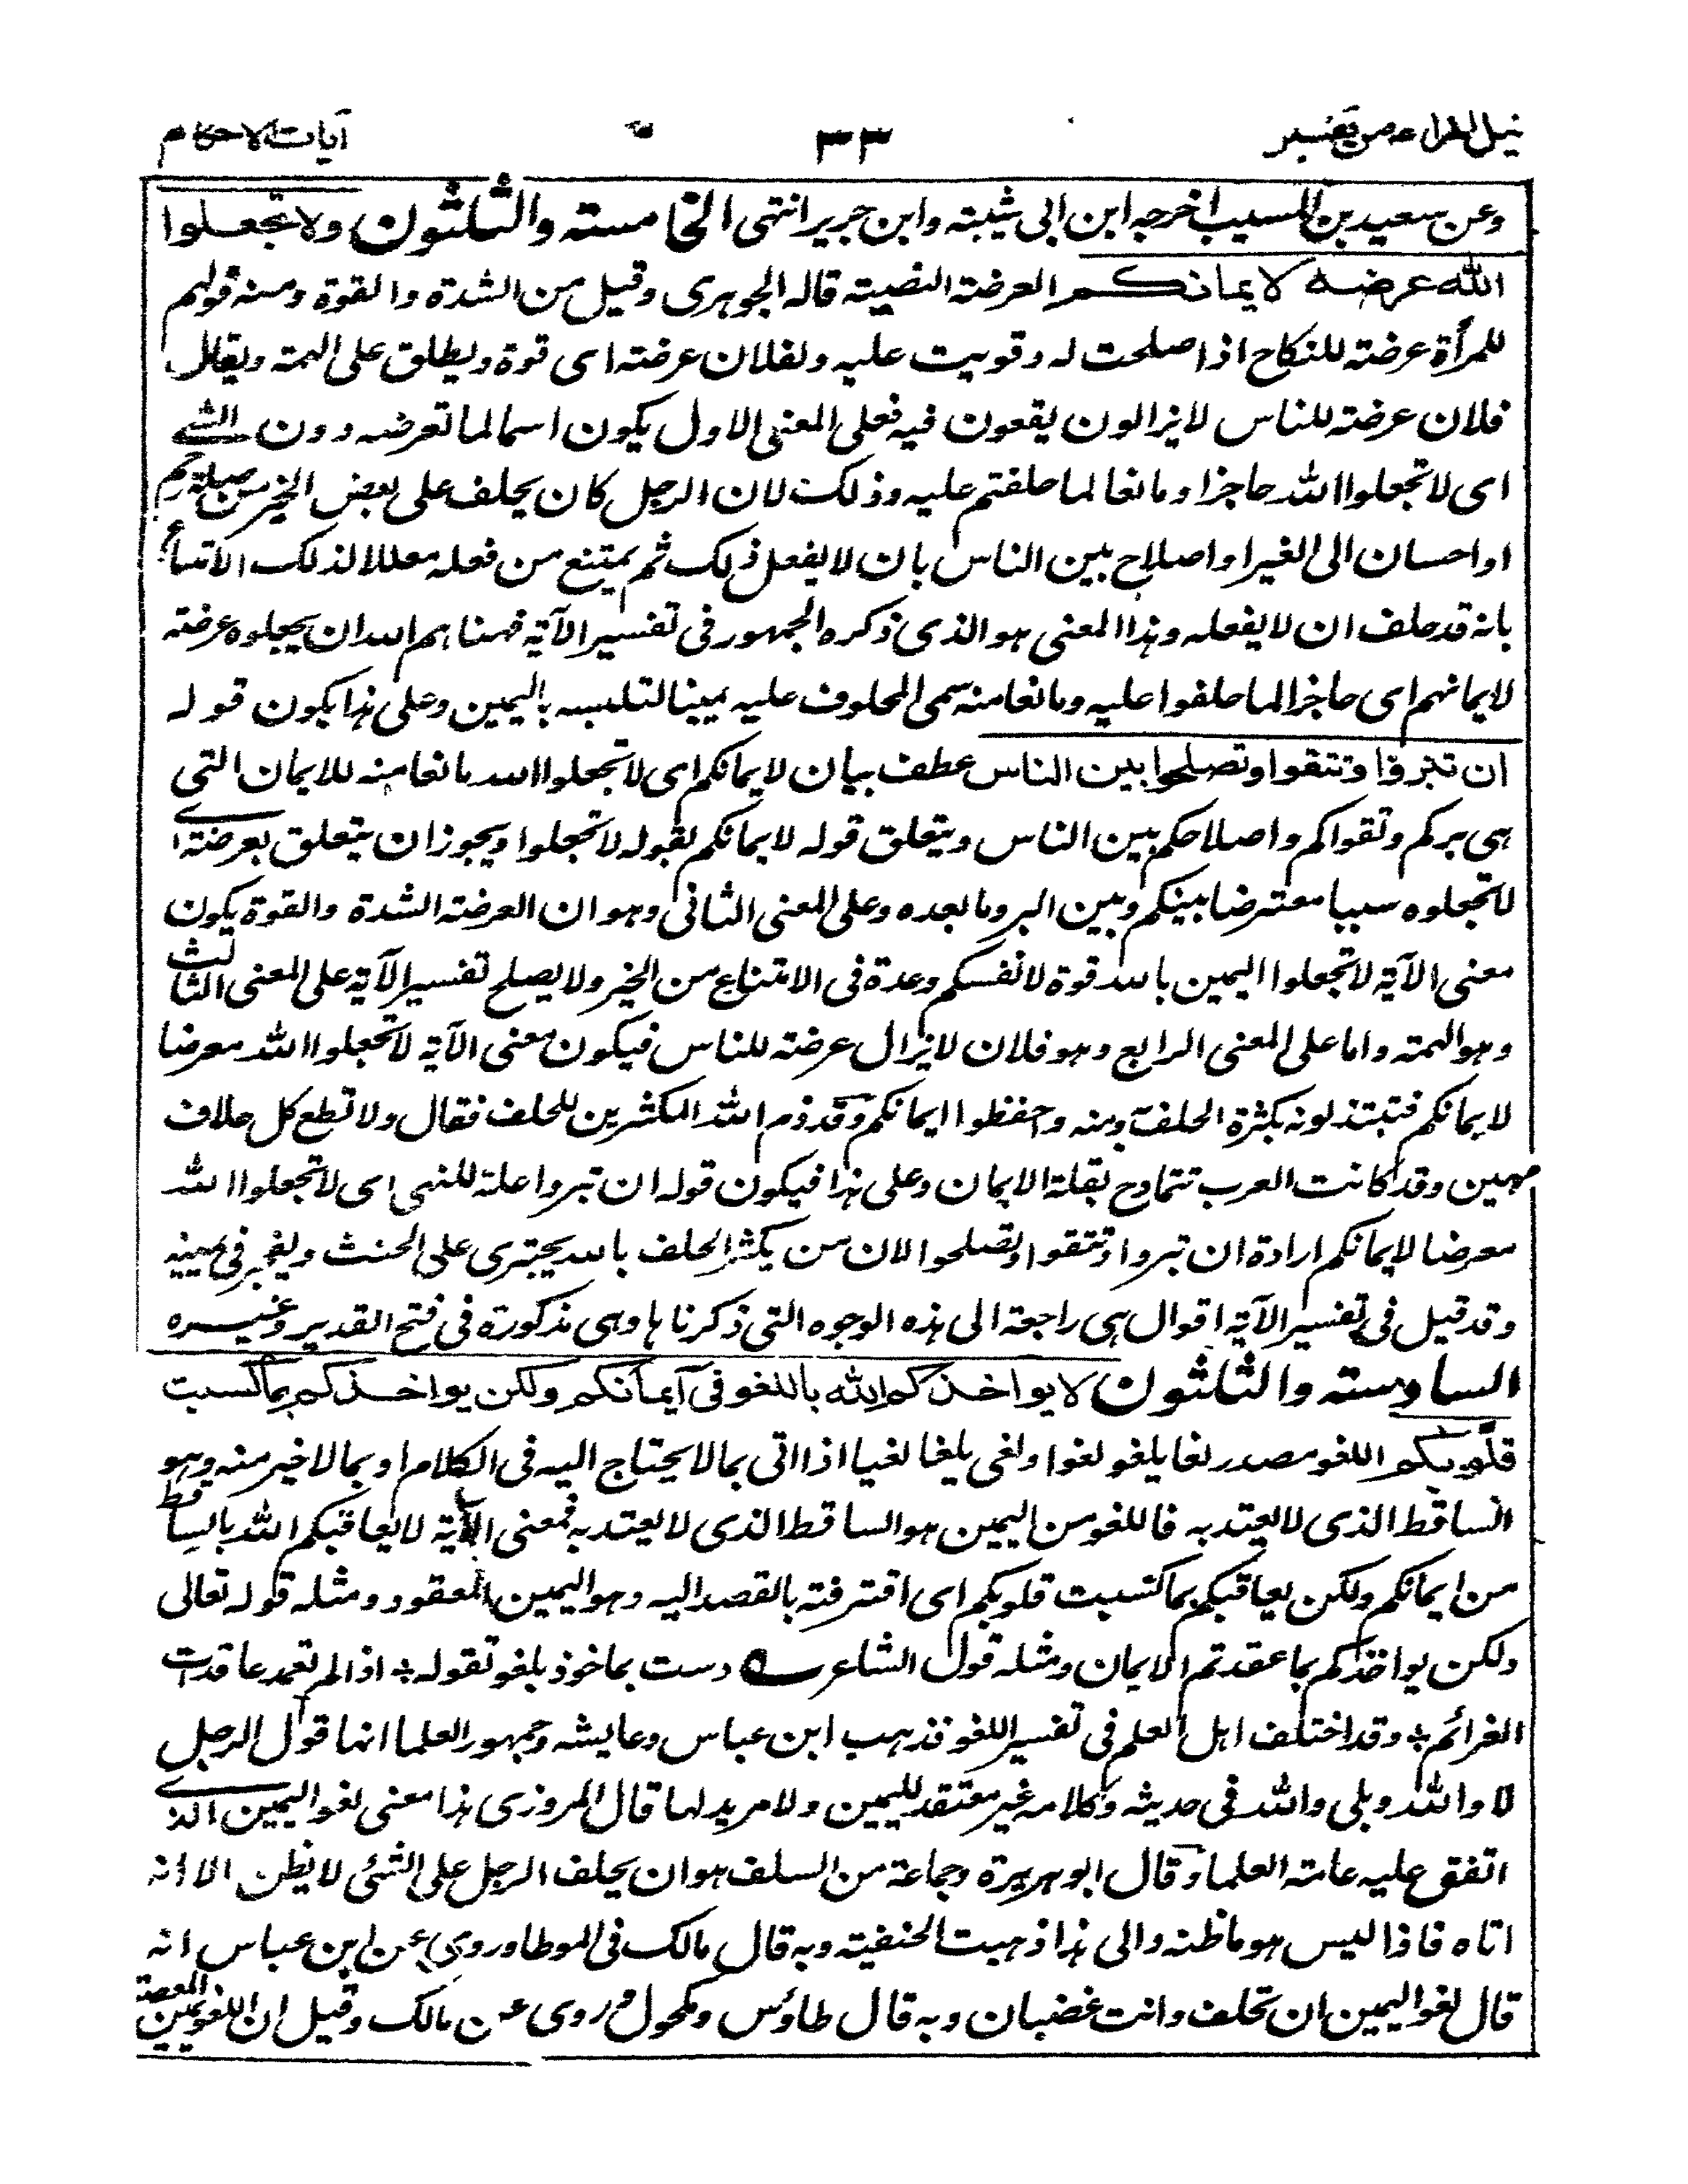 نيل المرام من تفسير
٣٣
آيات الاحكام
وعن سعيد بن المسيب اخرجه ابن ابى شيبة وابن جرير انتهى الخامسة والثلثون ولا تجعلوا
الله عرضة لايمانكم العرضة النصبة قاله الجوهرى وقيل من الشدة والقوة ومنه قولهم
للمرأة عرضة للنكاح اذا صلحت له وقويت عليه ولفلان عرضة اى قوة ويطلق على الهمة ويقال
فلان عرضة للناس لا يزالون يقعون فيه فعلى المعنى الاول يكون اسما لما تعرضه دون الشى
اى لا تجعلوا الله حاجزا ومانعا لما حلفتم عليه وذلك لان الرجل كان يحلف على بعض الخير من صلة رحم
او احسان الى الغير او اصلاح بين الناس بان لا يفعل ذلك ثم يمتنع من فعله معللا لذلك الامتناع
بانه قد حلف ان لا يفعله وهذا المعنى هو الذى ذكره الجمهور فى تفسير الآية فنهاهم الله ان يجعلوه عرضة
لايمانهم اى حاجزا لما حلفوا عليه ومانعا منه سمى المحلوف عليه يمينا لتلبسه باليمين وعلى هذا يكون قوله
ان تبروا وتتقوا وتصلحوا بين الناس عطف بيان لايمانكم اى لا تجعلوا الله مانعا منه للايمان التى
هى بركم وتقواكم واصلاحكم بين الناس ويتعلق قوله لايمانكم لقبوله لا تجعلوا ويجوز ان يتعلق بعرضة اى
لا تجعلوه سببا معترضا بينكم وبين البر وما بعده وعلى المعنى الثانى وهو ان العرضة الشدة والقوة يكون
معنى الآية لا تجعلوا اليمين بالله قوة لانفسكم وعدة فى الامتناع من الخير ولا يصلح تفسير الآية على المعنى الثالث
وهو الهمة واما على المعنى الرابع وهو فلان لا يزال عرضة للناس فيكون معنى الآية لا تجعلوا الله معرضا
لايمانكم فتبتذلونه بكثرة الحلف ومنه واحفظوا ايمانكم وقد ذم الله المكثرين للحلف فقال ولا تطع كل حلاف
مهين وقد كانت العرب تتمادح بقلة الايمان وعلى هذا فيكون قوله ان تبروا علة للنهى اى لا تجعلوا الله
معرضا لايمانكم ارادة ان تبروا وتتقوا وتصلحوا لان من يكثر الحلف بالله يجترى على الحنث ويفجر فى يمينه
وقد قيل فى تفسير الآية اقوال هى راجعة الى هذه الوجوه التى ذكرناها وهى مذكورة فى فتح القدير وغيره
السادسة والثلثون لا يواخذكم الله باللغو فى ايمانكم ولكن يواخذكم بما كسبت
قلوبكم اللغو مصدر لغا يلغو لغوا ولغى يلغا لغيا اذا اتى بما لا يحتاج اليه فى الكلام او بما لا خير منه وهو
الساقط الذى لا يعتد به فاللغو من اليمين هو الساقط الذى لا يعتد به فمعنى الآية لا يعاقبكم الله بالساقط
من ايمانكم ولكن يعاقبكم بما كسبت قلوبكم اى اقترفته بالقصد اليه وهو اليمين المعقود ومثله قوله تعالى
ولكن يواخذكم بما عقدتم الايمان ومثله قول الشاعر ؎ ولست بماخوذ بلغو تقوله ؞ اذا لم تعمد عاقدات
الغرائم ؞ وقد اختلف اهل العلم فى تفسير اللغو فذهب ابن عباس وعايشه وجمهور العلما انها قول الرجل
لا والله وبلى والله فى حديثه وكلامه غير معتقد لليمين ولا مريد لها قال المروزى هذا معنى لغو اليمين الذى
اتفق عليه عامة العلما وقال ابو هريرة وجماعة من السلف هو ان يحلف الرجل على الشئى لا يظن الا انه
اتاه فاذا ليس هو ما ظنه والى هذا ذهبت الحنفية وبه قال مالك فى الموطا وروى عن ابن عباس انه
قال لغو اليمين ان تحلف وانت غضبان وبه قال طاؤس ومكحول وروى عن مالك وقيل ان اللغو يمين المعصية